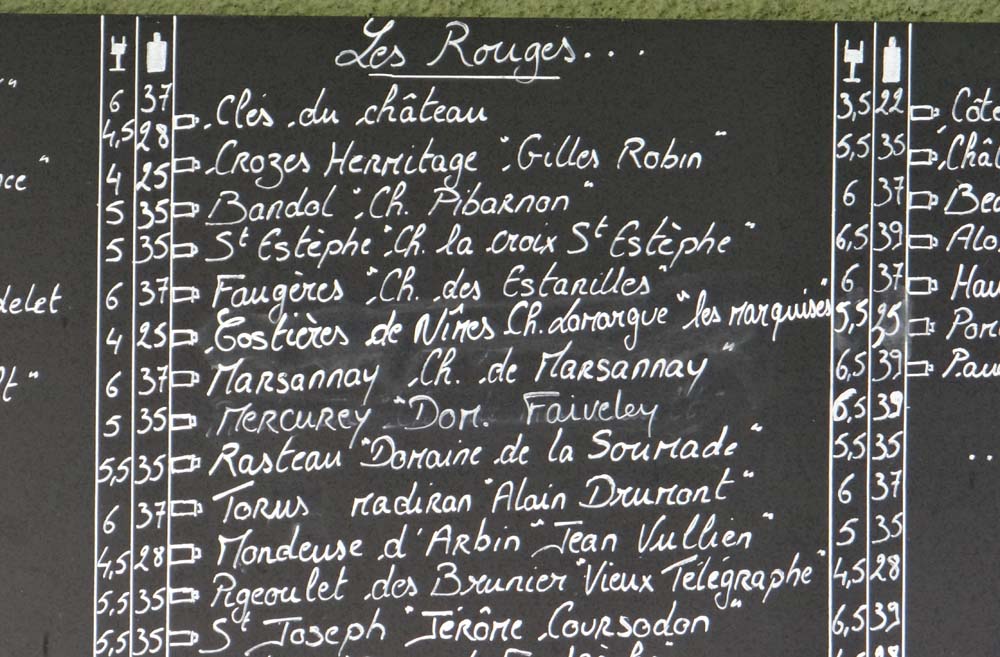 Les Rouges...
6 37 Clés du château 3,5 22 Côte
4,5 28 Crozes Hermitage "Gilles Robin" 5,5 35 Châ
4 25 Bandol "Ch. Pibarnon" 6 37 Bea
5 35 St Estèphe "Ch. la croix St Estèphe" 6,5 39 Alo
5 35 Faugères "Ch. des Estanilles" 6 37 Hau
delet 6 37 Costières de Nîmes Ch. Lamargue "les marquises" 5,5 35 Pom
4 25 Marsannay Ch. de Marsannay" 6,5 39 Pau
lt" 6 37 Mercurey "Dom. Faiveley" 6,5 39
5 35 Rasteau "Domaine de la Soumade" 5,5 35 ..
5,5 35 Torus madiran "Alain Drumont" 6 37
6 37 Mondeuse d'Arbin "Jean Vullien" 5 35
4,5 28 Pigeoulet des Brunier "Vieux Télégraphe" 4,5 28
5,5 35 St Joseph "Jérôme Coursodon" 6,5 39
5,5 35